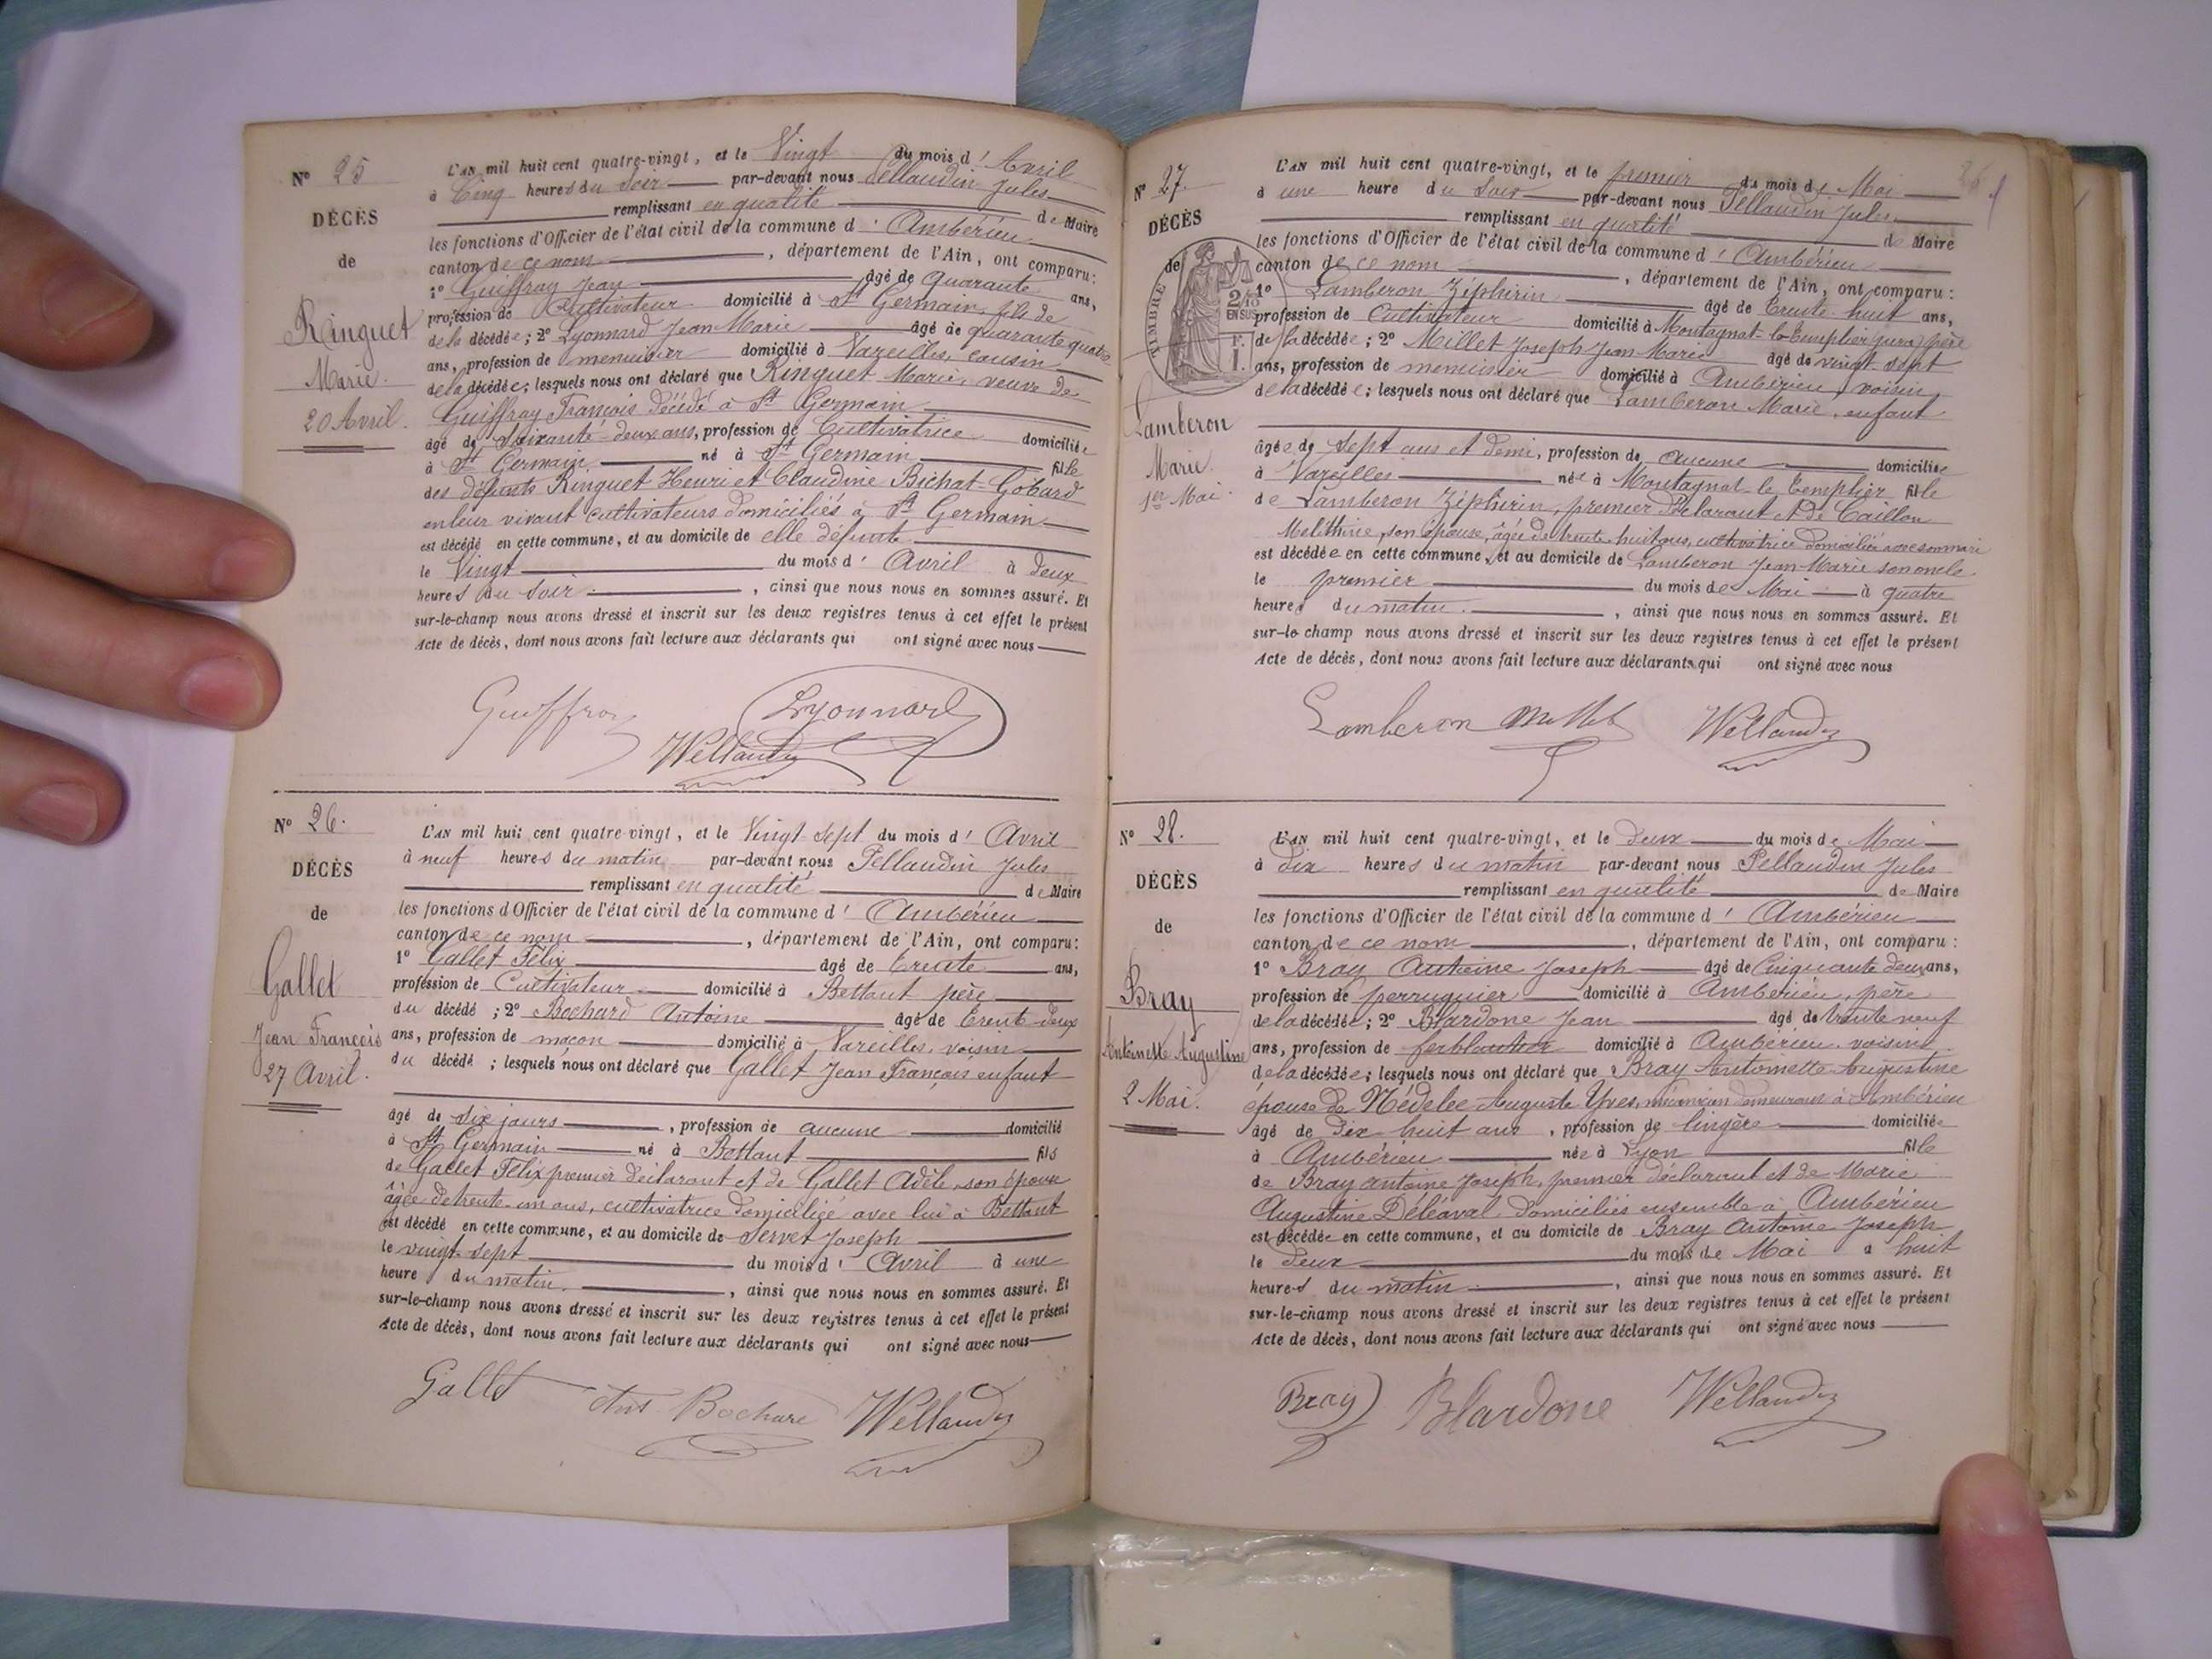 N° 25
DÉCÈS
de
Ringuet
Marie.
20 Avril.
L'AN mil huit cent quatre-vingt, et le Vingt du mois d' Avril
à Cinq heures du Soir par-devant nous Pellaudin Jules
remplissant en qualité de Maire
les fonctions d'Officier de l'état civil de la commune d' Ambérieu
canton de ce nom , département de l'Ain, ont comparu:
1° Guiffray Jean âgé de quarante ans,
profession de Cultivateur domicilié à St Germain, fils de
de la décédée; 2° Lyonnard Jean Marie âgé de quarante quatre
ans, profession de menuisier domicilié à Vareilles, cousin
de la décédée; lesquels nous ont déclaré que Ringuet Marie, veuve de
Guiffray François décédé à St Germain
âgé de Soixante-deux ans, profession de Cultivatrice domiciliée
à St Germain né à St Germain fille
des défunts Ringuet Henri et Claudine Bichat-Gobard
en leur vivant cultivateurs domiciliés à St Germain
est décédé en cette commune, et au domicile de elle défunte
le Vingt du mois d' Avril à deux
heures du Soir , ainsi que nous nous en sommes assuré. Et
sur-le-champ nous avons dressé et inscrit sur les deux registres tenus à cet effet le présent
Acte de décès, dont nous avons fait lecture aux déclarants qui ont signé avec nous
Guiffray Lyonnard
N° 26.
DÉCÈS
de
Gallet
Jean François
27 Avril.
L'AN mil huit cent quatre-vingt, et le Vingt-Sept du mois d' Avril
à neuf heures du matin par-devant nous Pellaudin Jules
remplissant en qualité de Maire
les fonctions d'Officier de l'état civil de la commune d' Ambérieu
canton de ce nom , département de l'Ain, ont comparu:
1° Gallet Félix âgé de Trente ans,
profession de Cultivateur domicilié à Bettant père
du décédé ; 2° Bochard Antoine âgé de trente-deux
ans, profession de maçon domicilié à Vareilles, voisin
du décédé ; lesquels nous ont déclaré que Gallet Jean François enfant
âgé de Six jours , profession de aucune domicilié
à St Germain né à Bettant fils
de Gallet Félix premier déclarant et de Gallet Adèle, son épouse
âgée de trente-un ans, cultivatrice domiciliée avec lui à Bettant
est décédé en cette commune, et au domicile de Servet Joseph
le vingt-sept du mois d' Avril à une
heure du matin. , ainsi que nous nous en sommes assuré. Et
sur-le-champ nous avons dressé et inscrit sur les deux registres tenus à cet effet le présent
Acte de décès, dont nous avons fait lecture aux déclarants qui ont signé avec nous
Gallet
N° 27.
DÉCÈS
de
TIMBRE
2/10
EN SUS
F.
1.
Lamberon
Marie.
1er Mai.
L'AN mil huit cent quatre-vingt, et le premier du mois de Mai
à une heure du Soir par-devant nous Pellaudin Jules
remplissant en qualité de Maire
les fonctions d'Officier de l'état civil de la commune d' Ambérieu
canton de ce nom , département de l'Ain, ont comparu:
1° Lamberon Zéphirin âgé de Trente-huit ans,
profession de Cultivateur domicilié à Montagnat-le-Templier père
de la décédée; 2° Millet Joseph Jean-Marie âgé de vingt-sept
ans, profession de menuisier domicilié à Ambérieu, voisin
de la décédée; lesquels nous ont déclaré que Lamberon Marie, enfant
âgée de Sept ans et demi, profession de aucune domiciliée
à Vareilles née à Montagnat-le-Templier fille
de Lamberon Zéphirin, premier Déclarant et de Caillon
son épouse, âgée de trente-huit ans, cultivatrice domiciliée avec son mari
est décédée en cette commune, et au domicile de Lamberon Jean-Marie son oncle
le premier du mois de Mai à quatre
heures du matin. , ainsi que nous nous en sommes assuré. Et
sur-le-champ nous avons dressé et inscrit sur les deux registres tenus à cet effet le présent
Acte de décès, dont nous avons fait lecture aux déclarants qui ont signé avec nous
Lamberon Millet
N° 28.
DÉCÈS
de
Bray
Antoinette Augustine
2 Mai.
L'AN mil huit cent quatre-vingt, et le Deux du mois de Mai
à Dix heures du matin par-devant nous Pellaudin Jules
remplissant en qualité de Maire
les fonctions d'Officier de l'état civil de la commune d' Ambérieu
canton de ce nom , département de l'Ain, ont comparu:
1° Bray Antoine Joseph âgé de Cinquante deux ans,
profession de perruquier domicilié à Ambérieu, père
de la décédée; 2° Blardone Jean âgé de trente neuf
ans, profession de ferblantier domicilié à Ambérieu, voisin
de la décédée; lesquels nous ont déclaré que Bray Antoinette Augustine
épouse de Nédelec Auguste Yves, mécanicien demeurant à Ambérieu
âgé de Dix-huit ans , profession de lingère domiciliée
à Ambérieu née à Lyon fille
de Bray Antoine Joseph, premier déclarant et de Marie
Augustine Déléaval domiciliés ensemble à Ambérieu
est décédée en cette commune, et au domicile de Bray Antoine Joseph
le Deux du mois de Mai à huit
heures du matin , ainsi que nous nous en sommes assuré. Et
sur-le-champ nous avons dressé et inscrit sur les deux registres tenus à cet effet le présent
Acte de décès, dont nous avons fait lecture aux déclarants qui ont signé avec nous
Bray Blardone